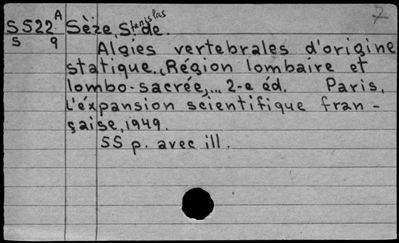 7
S522 A Sèze, Stanislas de.
S 9
Algies vertebrales d'origine
statique... Région lombaire et
lombo-sacrée,... 2-e éd. Paris,
L'éxpansion scientifique fran-
çaise, 1949.
55 p. avec ill.